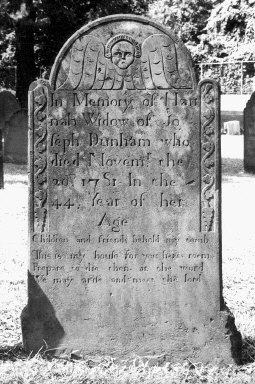 In Memory of Han
nah Widow of Jo
seph Dunham who
died Novem.r the
20 1781 In the
44, Year of her
Age
Children and friends behold my tomb
This is my house for you heres room
Prepare to die then at the word
We may arise and meet the lord